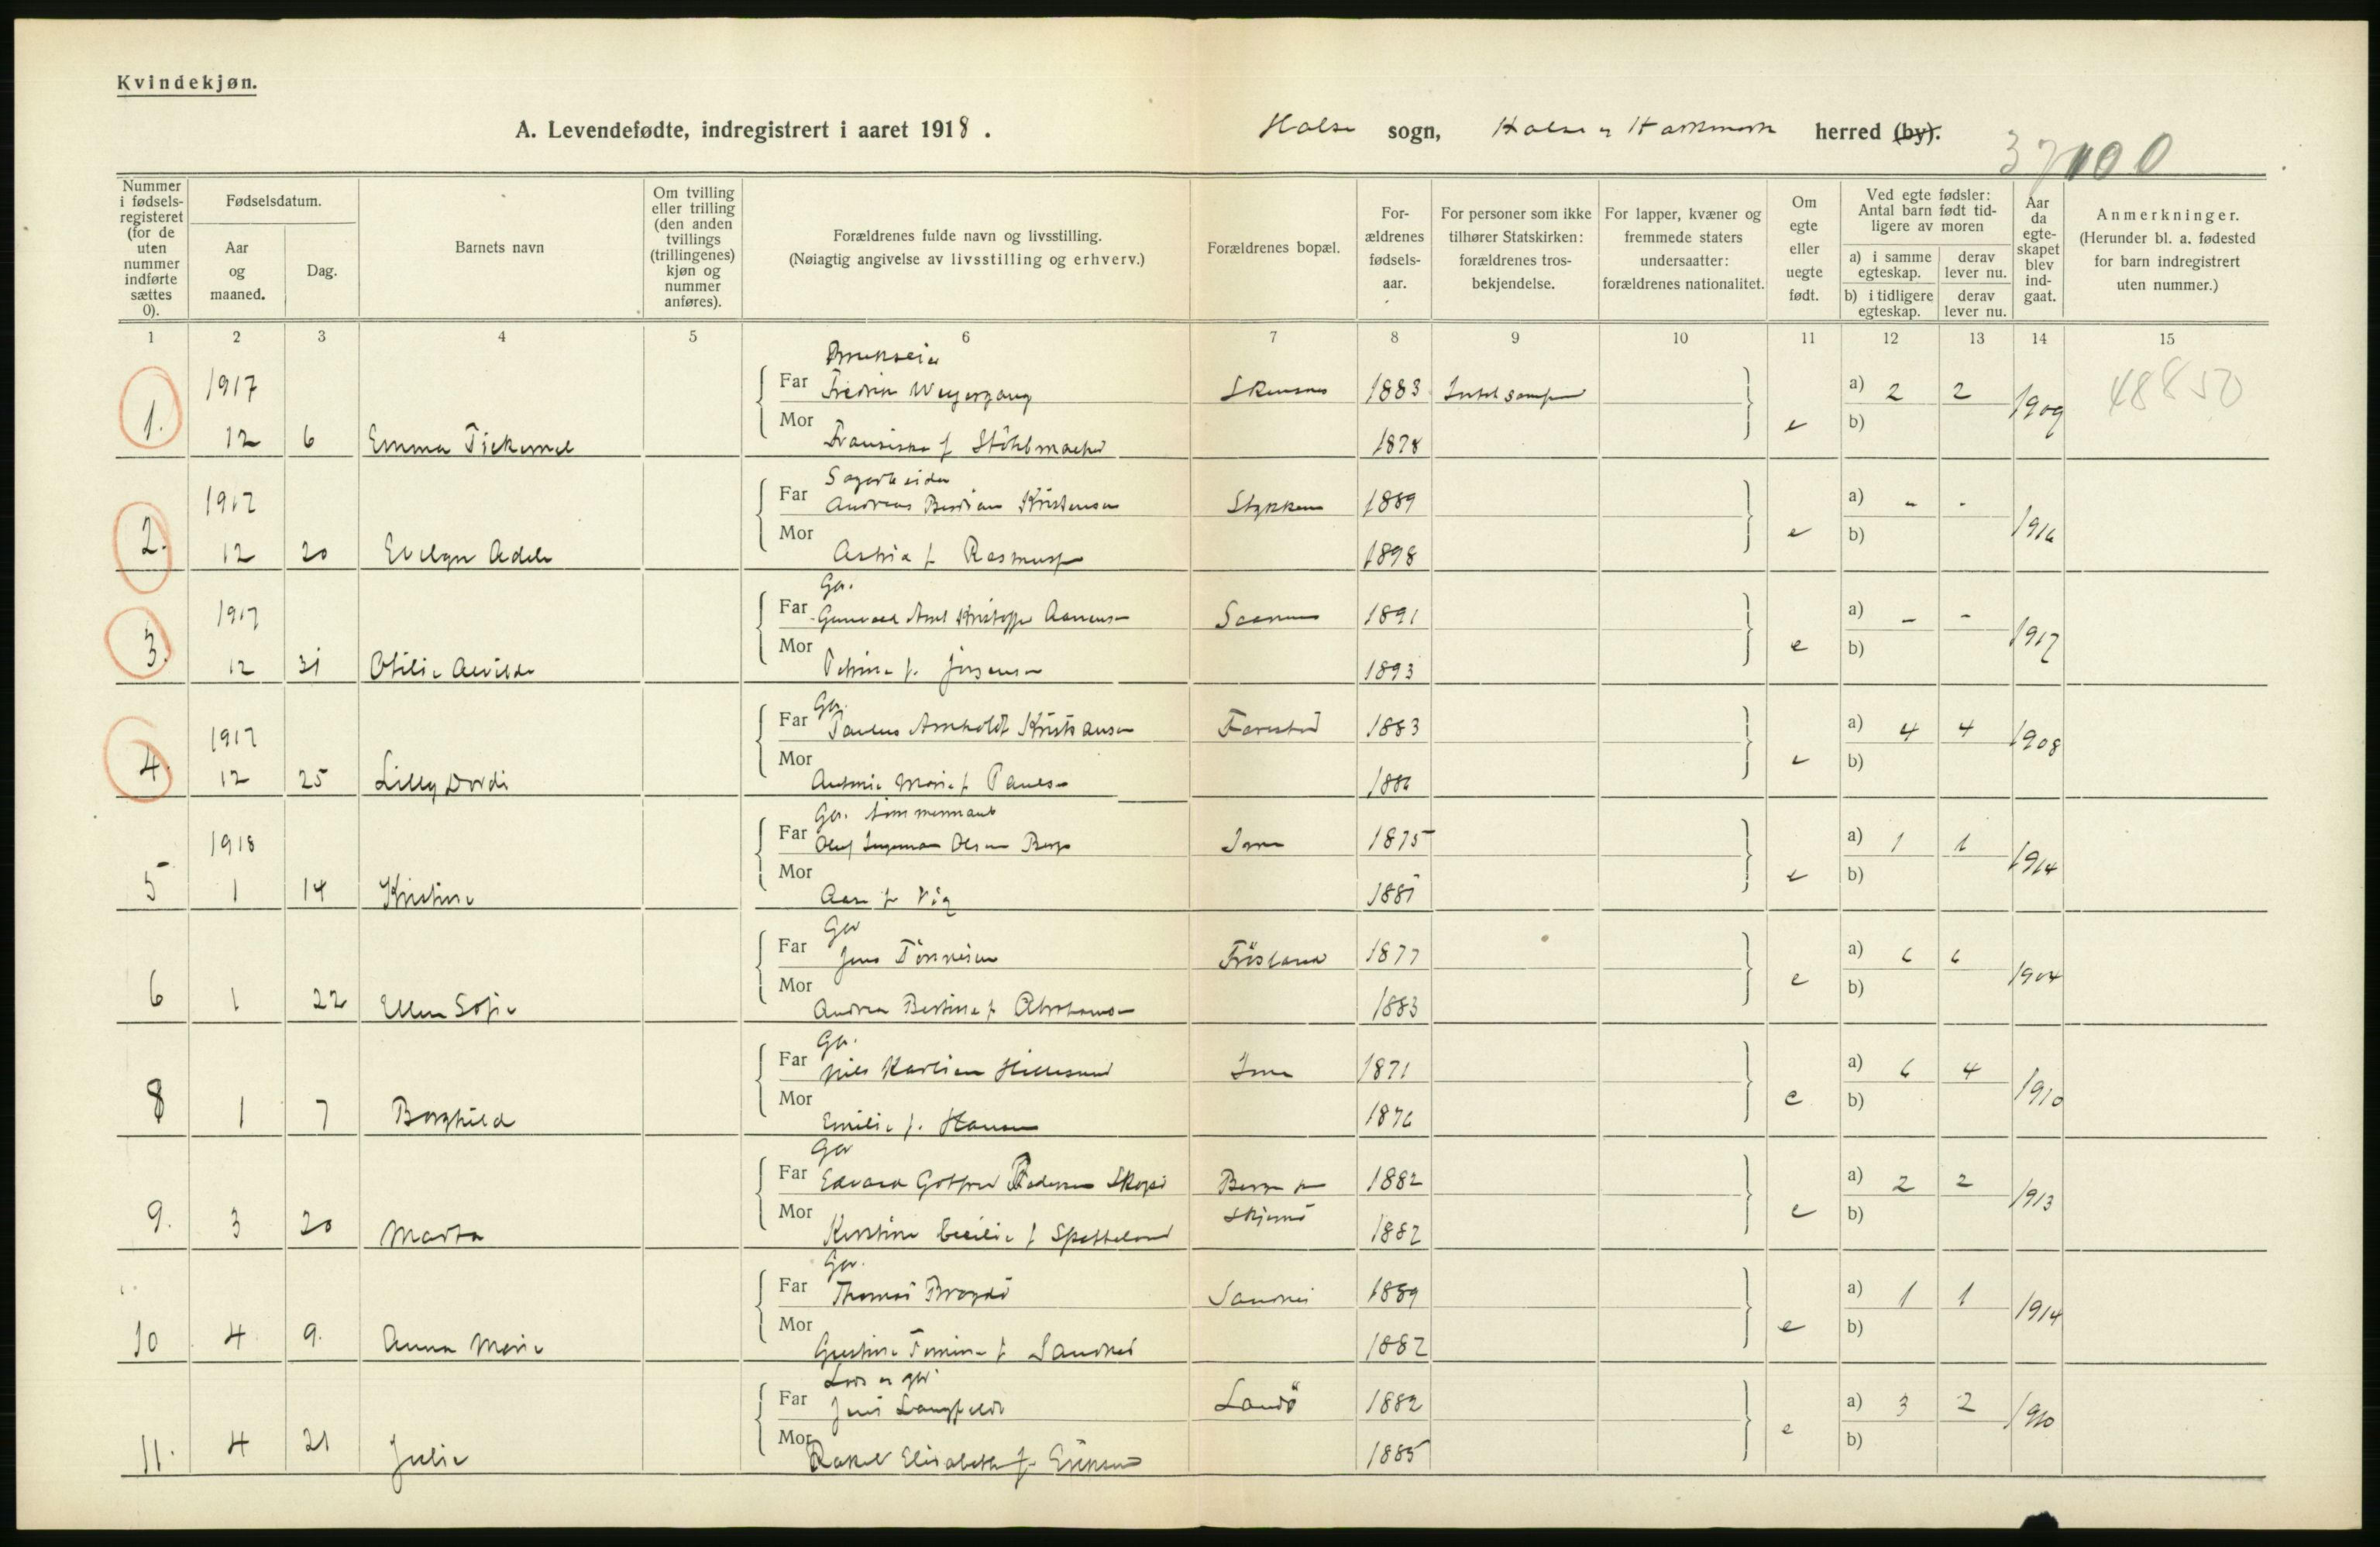 Kvindekjøn.
A. Levendefødte, indregistrert i aaret 1918.
Halse sogn, Halse og Harkmark herred (by).
37100
Nummer i fødselsregisteret (for de uten nummer indførte sættes 0).
Fødselsdatum.
Aar og maaned.
Dag.
Barnets navn
Om tvilling eller trilling (den anden tvillings (trillingenes) kjøn og nummer anføres).
Forældrenes fulde navn og livsstilling.
(Nøiagtig angivelse av livsstilling og erhverv.)
Forældrenes bopæl.
Forældrenes fødselsaar.
For personer som ikke tilhører Statskirken: forældrenes trosbekjendelse.
For lapper, kvæner og fremmede staters undersaatter: forældrenes nationalitet.
Om egte eller uegte født.
Ved egte fødsler: Antal barn født tidligere av moren
a) i samme egteskap.
derav lever nu.
b) i tidligere egteskap.
derav lever nu.
Aar da egteskapet blev indgaat.
Anmerkninger.
(Herunder bl. a. fødested for barn indregistrert uten nummer.)
1 2 3 4 5 6 7 8 9 10 11 12 13 14 15
1917
Far Fredrik 1883 a) 2 2 1909 48850
1. 12 6 Emma
Mor 1878 e b)
1917
Far Andreas Kristensen 1889 a) - - 1916
2. 12 20 Evelyn Adele
Mor Astrid f. Rasmusen 1898 e b)
Ga.
1917
Far Kristoffer 1891 a) - - 1917
3. 12 31 Otilie Alvilde
Mor Petrine f. Jensen 1893 e b)
Ga.
1917
Far Paulus Arnholdt Kristiansen 1883 a) 4 4 1908
4. 12 25 Lilly Dordi
Mor Antonie Marie f. Paulsen 1886 e b)
Ga. tømmermand
1918
Far Oluf Olsen Berge 1875 a) 1 1 1914
5 1 14 Kristine
Mor Aase f. Vig 1881 e b)
Ga
Far Jens Tönnesen 1877 a) 6 6 1904
6 1 22 Ellen Sofie
Mor Andrea Bertine f. Abrahamsen 1883 e b)
Ga.
Far Nils Karlsen Hillesund 1871 a) 6 4 1910
8 1 7 Borghild
Mor Emilie f. Hansen 1876 e b)
Ga
Far Edvard Gotfred Pedersen Skjernö 1882 a) 2 2 1913
9. 3 20 Marta
Mor Kirstine Cecilie f. Spetteland 1882 e b)
Ga.
Far Thomas 1889 a) 1 1 1914
10 4 9. Anna Marie
Mor f. Sandnes 1882 e b)
Lods og ga.
Far Jens Langfeldt Landö 1882 a) 3 2 1910
11. 4 21 Julie
Mor Rakel Elisabeth f. Eriksen 1885 e b)